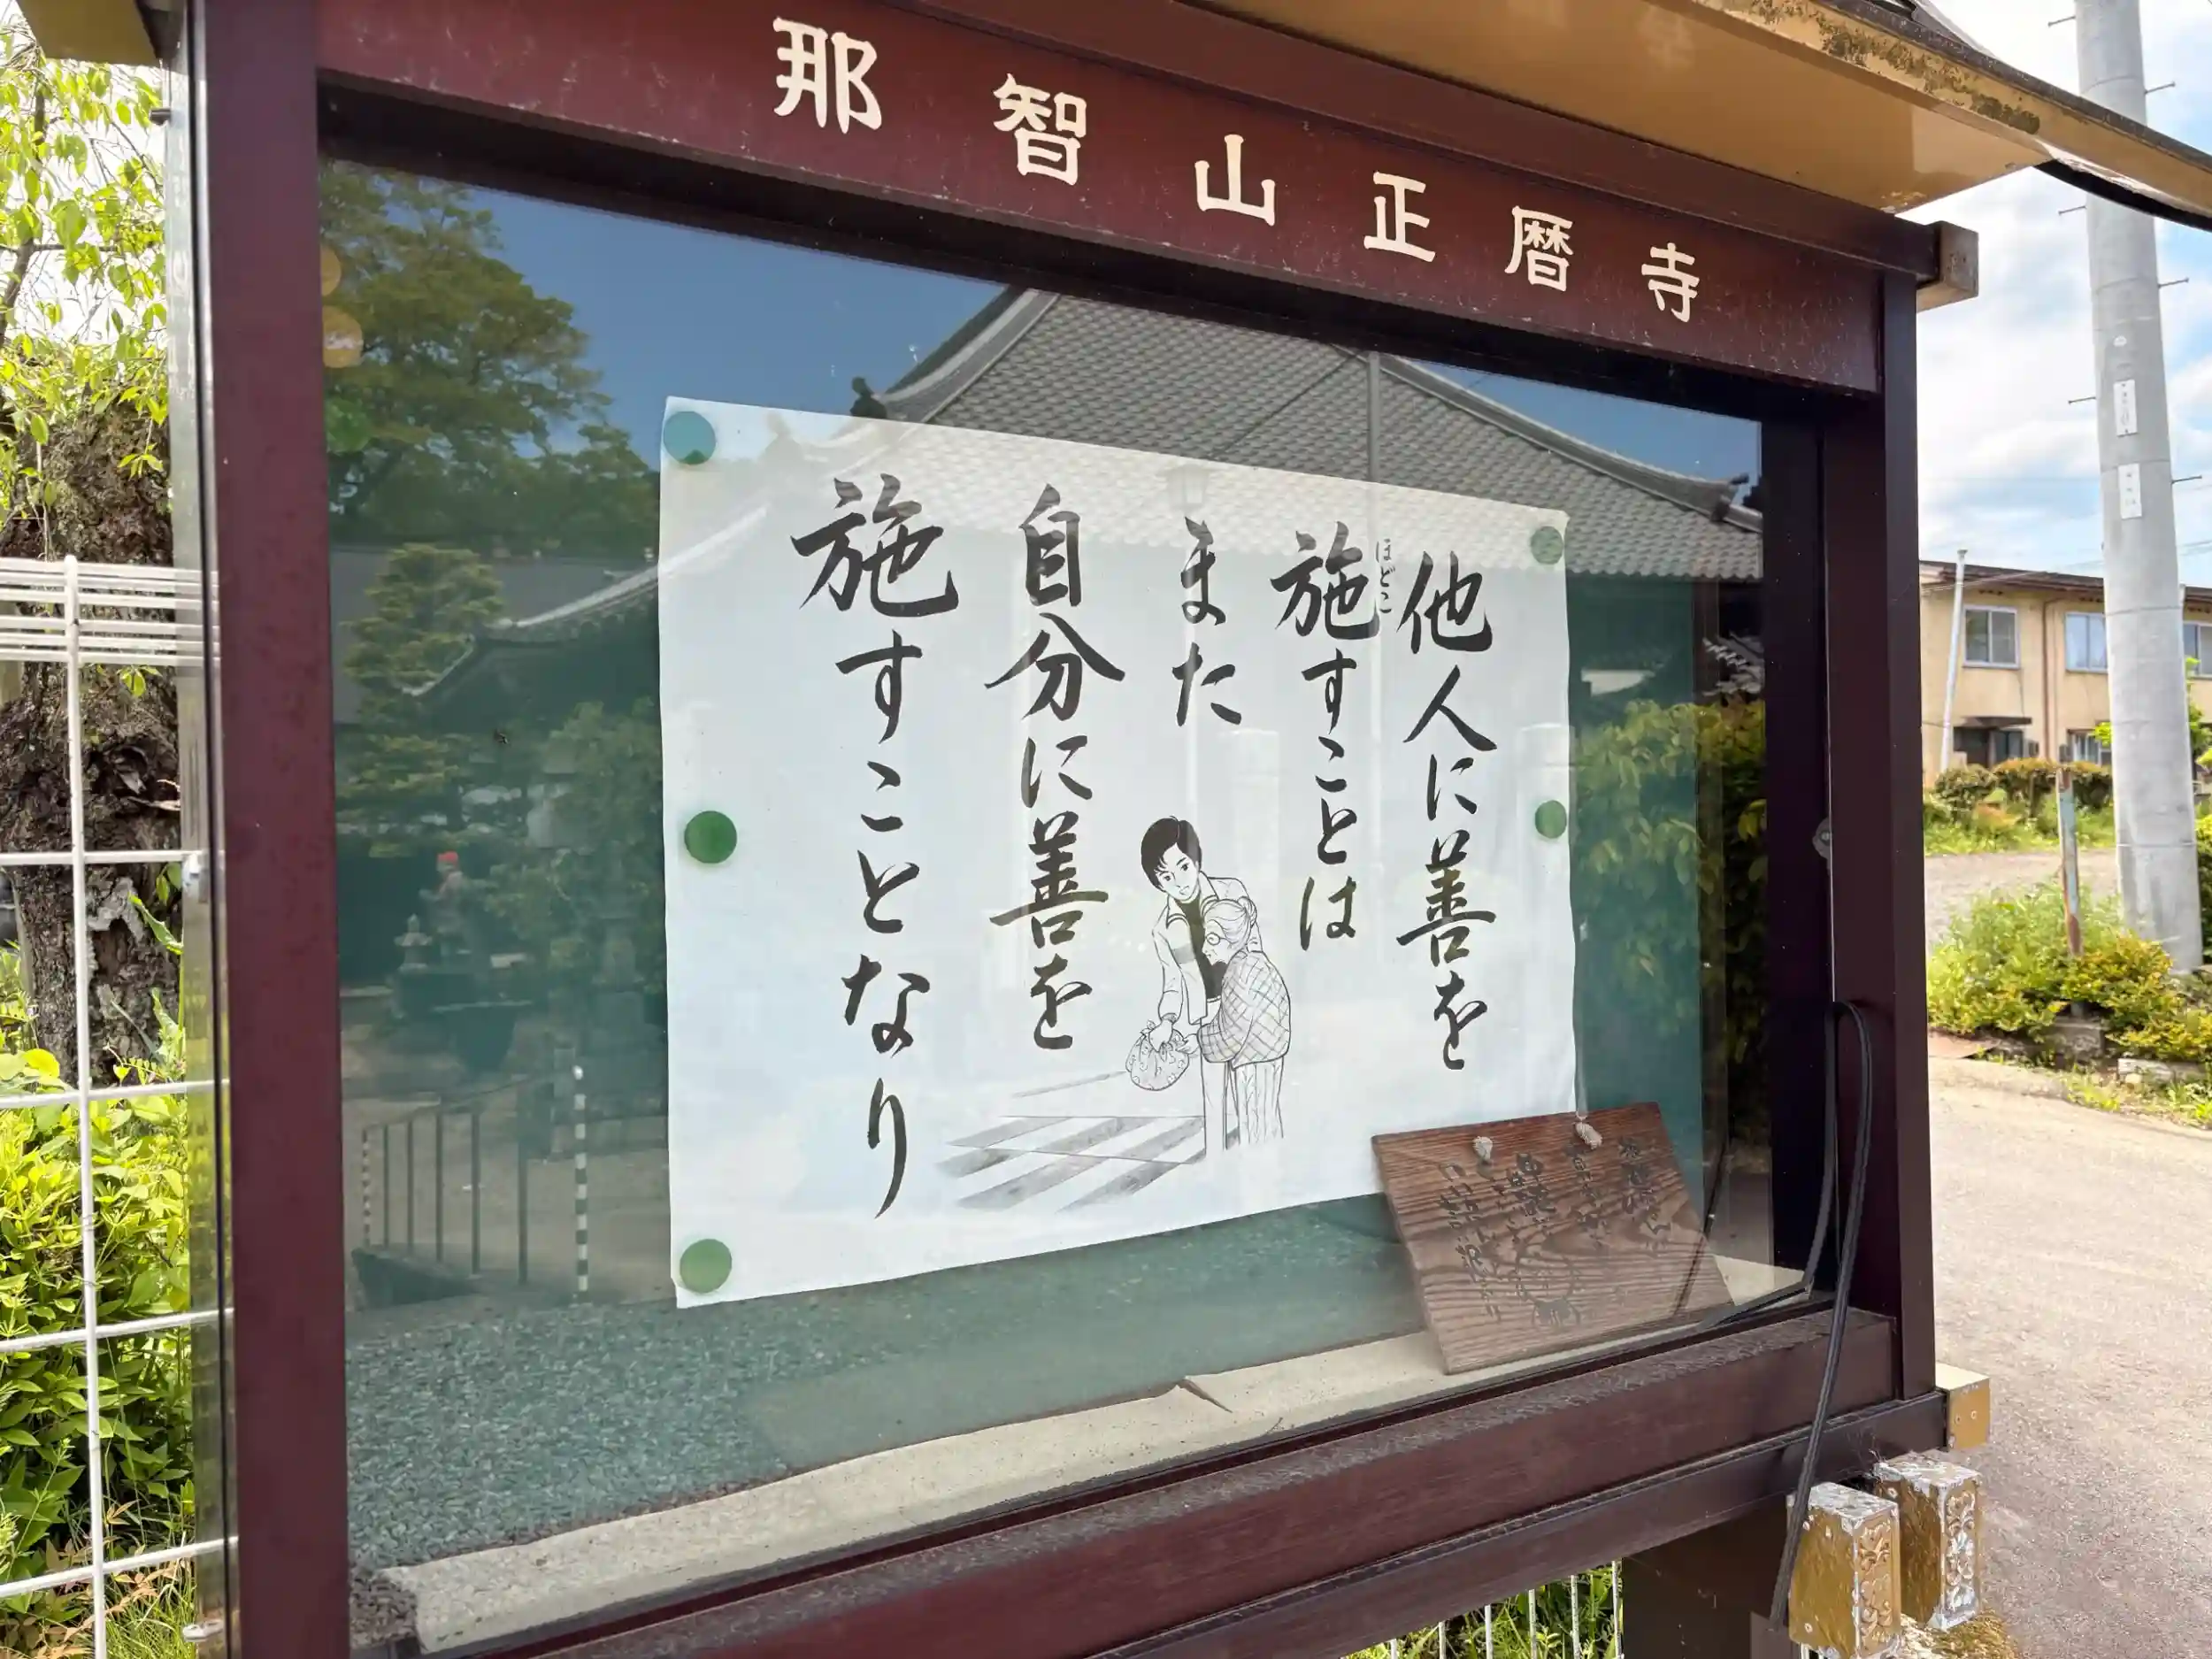 那智山正暦寺
他人に善を
施すことは
ほどこ
また
自分に善を
施すことなり